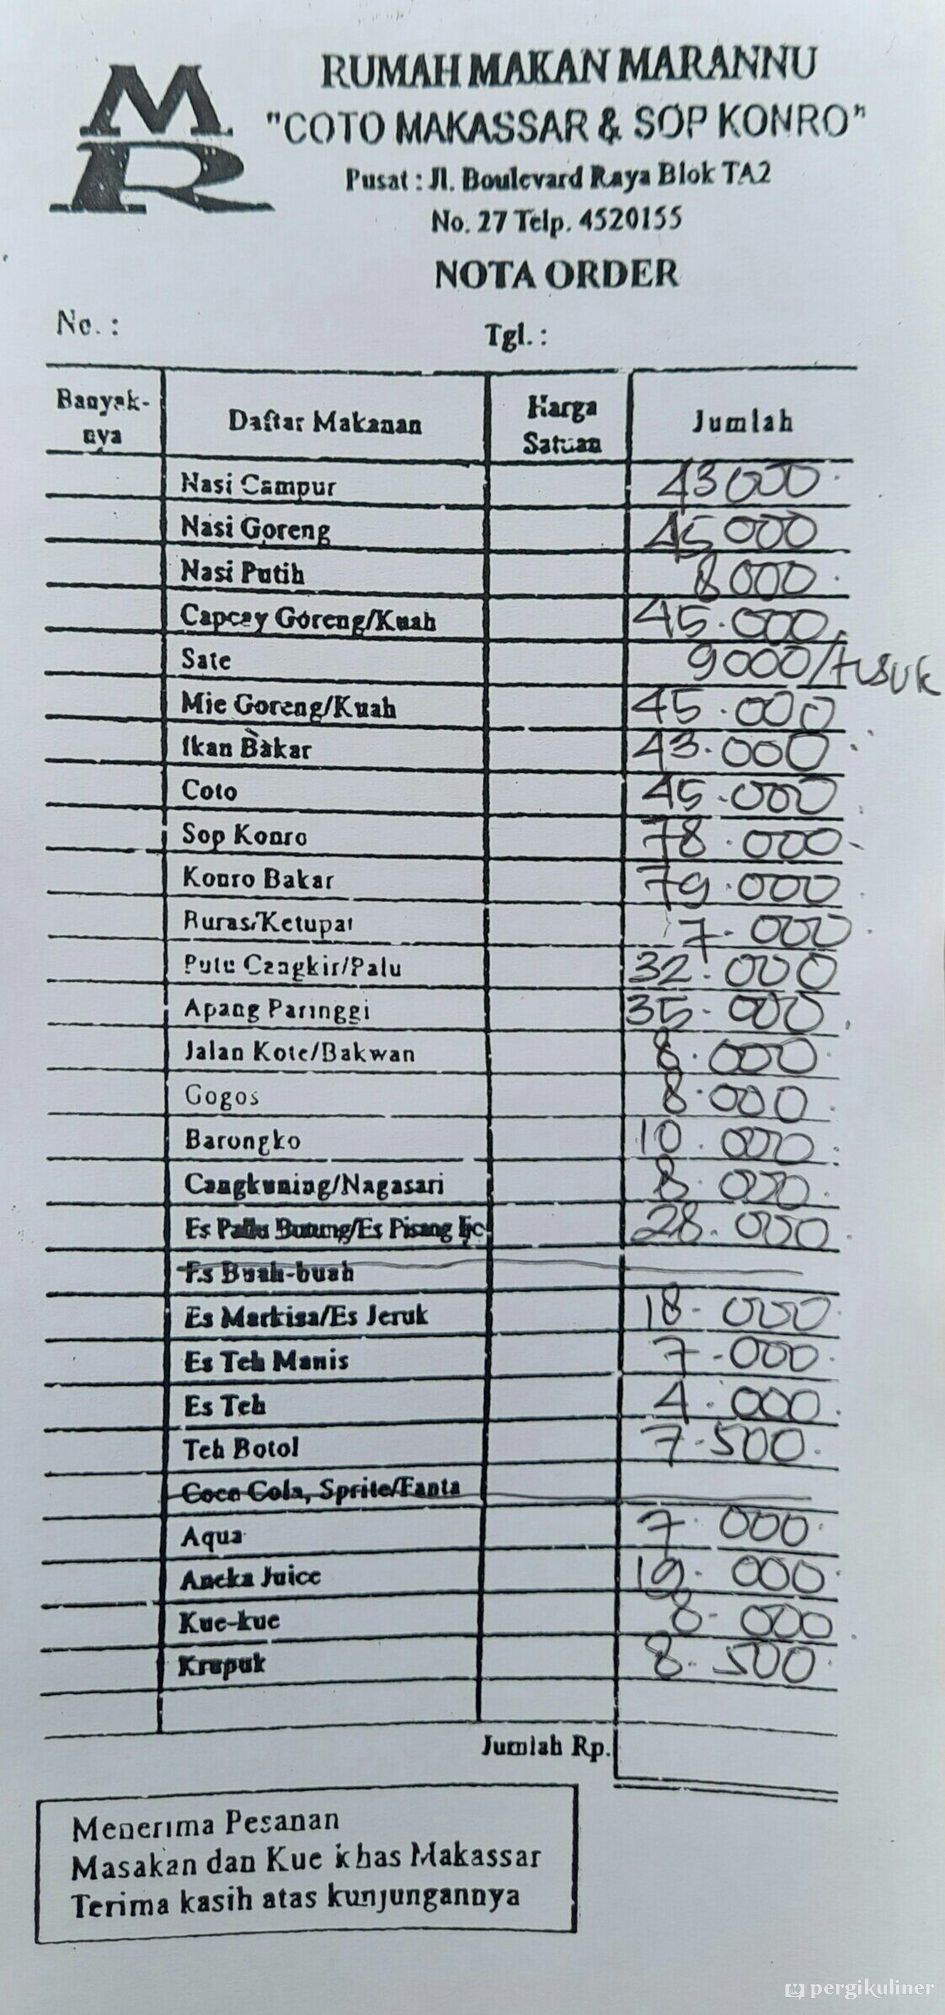 MR
RUMAH MAKAN MARANNU
"COTO MAKASSAR & SOP KONRO"
Pusat : Jl. Boulevard Raya Blok TA2
No. 27 Telp. 4520155
NOTA ORDER
No. :
Tgl. :
Banyak-nya Daftar Makanan Harga Satuan Jumlah
Nasi Campur 43000
Nasi Goreng 45000
Nasi Putih 8000
Capcay Goreng/Kuah 45.000
Sate 9000/tusuk
Mie Goreng/Kuah 45.000
Ikan Bakar 43.000
Coto 45.000
Sop Konro 78.000
Konro Bakar 79.000
Buras/Ketupat 7.000
Putu Cangkir/Palu 32.000
Apang Paringgi 35.000
Jalan Kote/Bakwan 8.000
Gogos 8.000
Barongko 10.000
Cangkuning/Nagasari 8.000
Es Pallu Butung/Es Pisang Ijo 28.000
Es Buah-buah
Es Markisa/Es Jeruk 18.000
Es Teh Manis 7.000
Es Teh 4.000
Teh Botol 7.500
Coca Cola, Sprite/Fanta
Aqua 7.000
Aneka Juice 19.000
Kue-kue 8.000
Krupuk 8.500
Jumlah Rp.
Menerima Pesanan
Masakan dan Kue khas Makassar
Terima kasih atas kunjungannya
pergikuliner